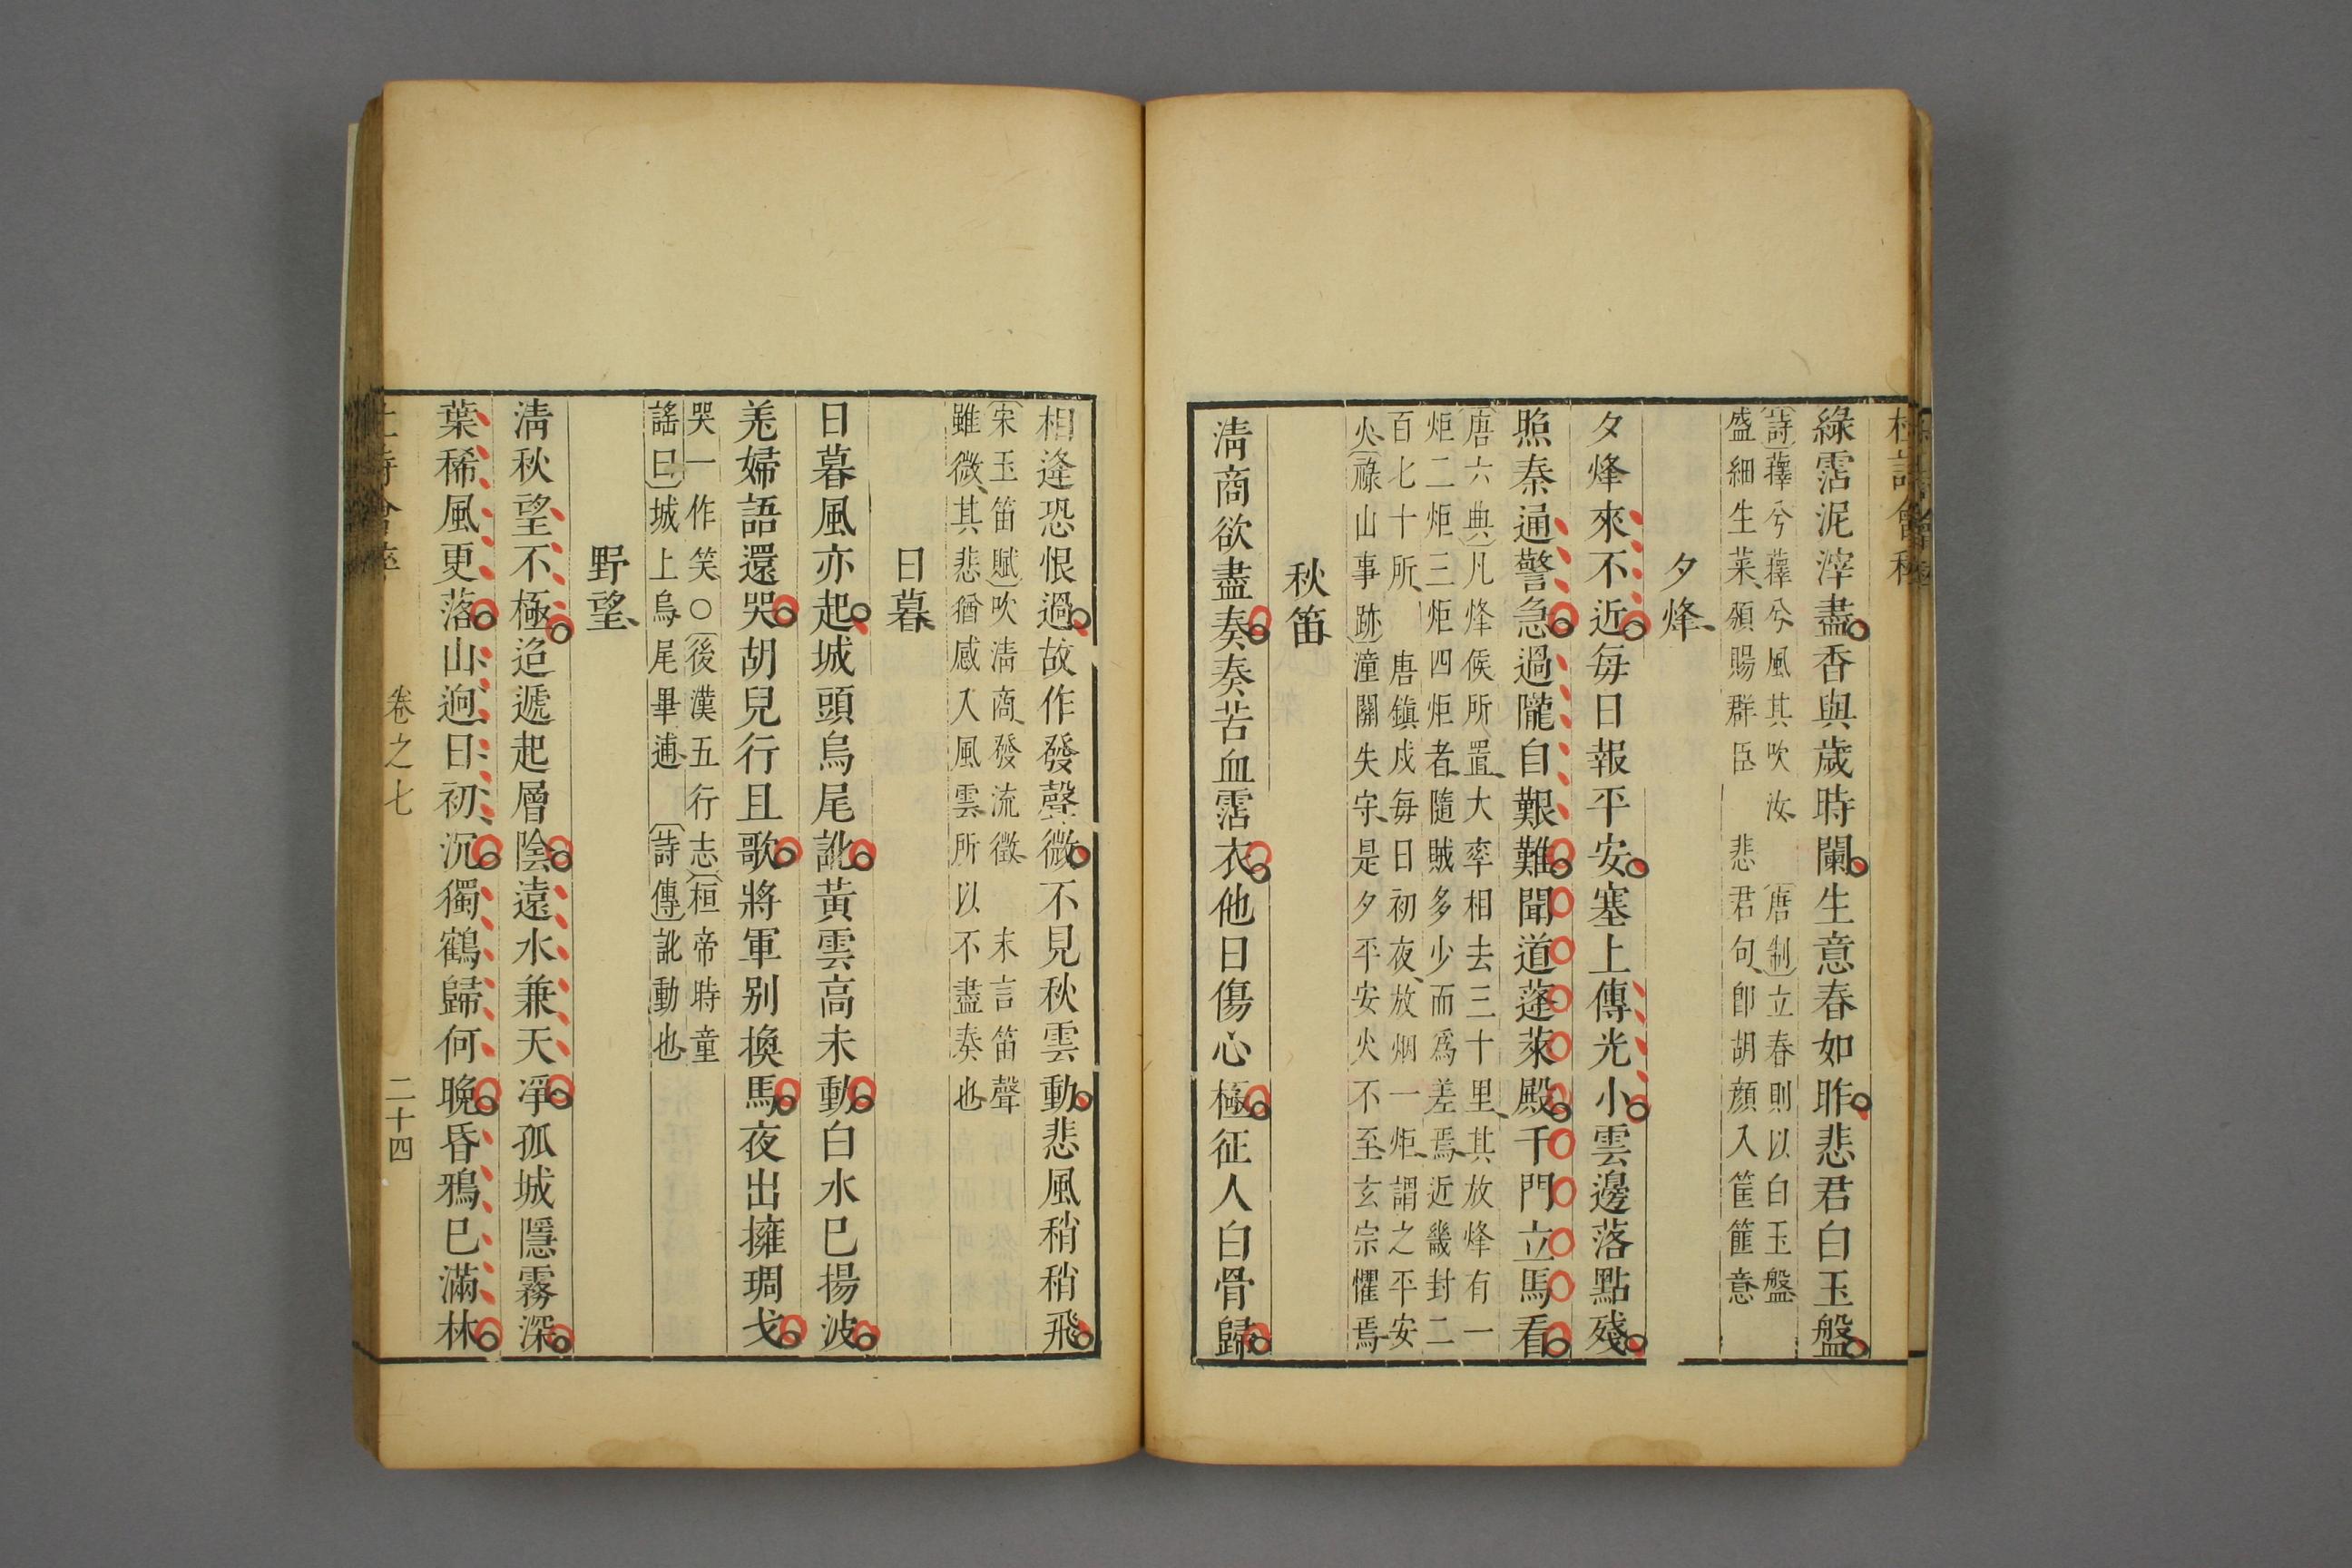 綠霑泥滓盡香與歲時闌生意春如昨悲君白玉盤
詩蘀兮蘀兮風其吹汝 唐制立春則以白玉盤
盛細生菜頒賜群臣 悲君句即胡顔入筐篚意
夕烽
夕烽來不近每日報平安塞上傳光小雲邊落點殘
照秦通警急過隴自艱難聞道蓬萊殿千門立馬看
唐六典凡烽候所置大率相去三十里其放烽有一
炬二炬三炬四炬者隨賊多少而爲差焉近畿封二
百七十所 唐鎮戍每日初夜放烟一炬謂之平安
火祿山事跡潼關失守是夕平安火不至玄宗懼焉
秋笛
清商欲盡奏奏苦血霑衣他日傷心極征人白骨歸
相逢恐恨過故作發聲微不見秋雲動悲風稍稍飛
宋玉笛賦吹清商發流徵 末言笛聲
雖微其悲猶感入風雲所以不盡奏也
日暮
日暮風亦起城頭烏尾訛黃雲高未動白水已揚波
羌婦語還哭胡兒行且歌將軍别換馬夜出擁琱戈
哭一作笑○後漢五行志桓帝時童
謠曰城上烏尾畢逋 詩傳訛動也
野望
清秋望不極迢遞起層陰遠水兼天凈孤城隱霧深
葉稀風更落山迥日初沉獨鶴歸何晚昏鴉已滿林
卷之七 二十四